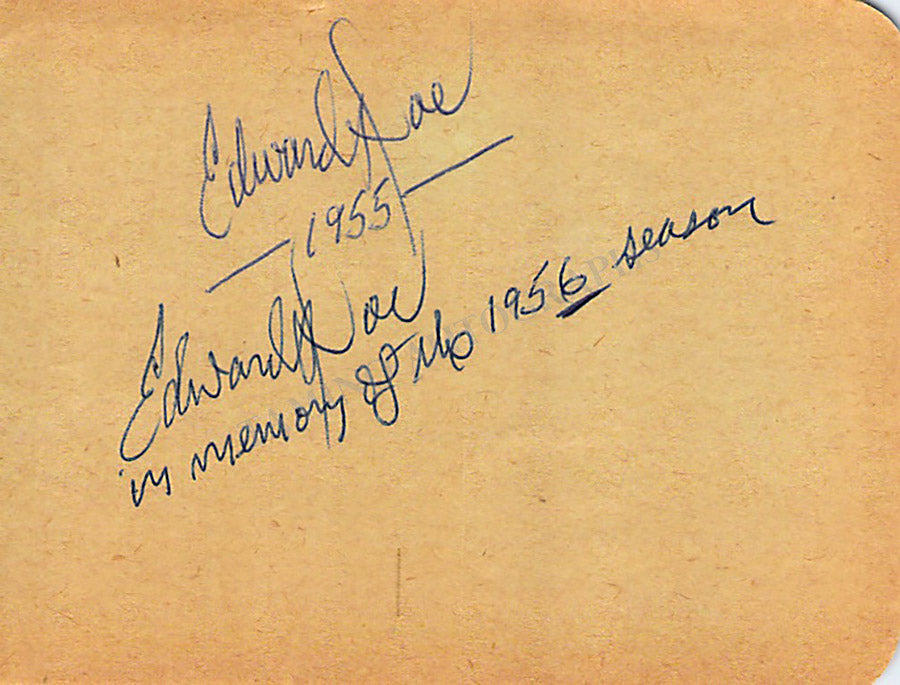 Edward Doe
— 1955 —
Edward Doe
in memory of the 1956 season